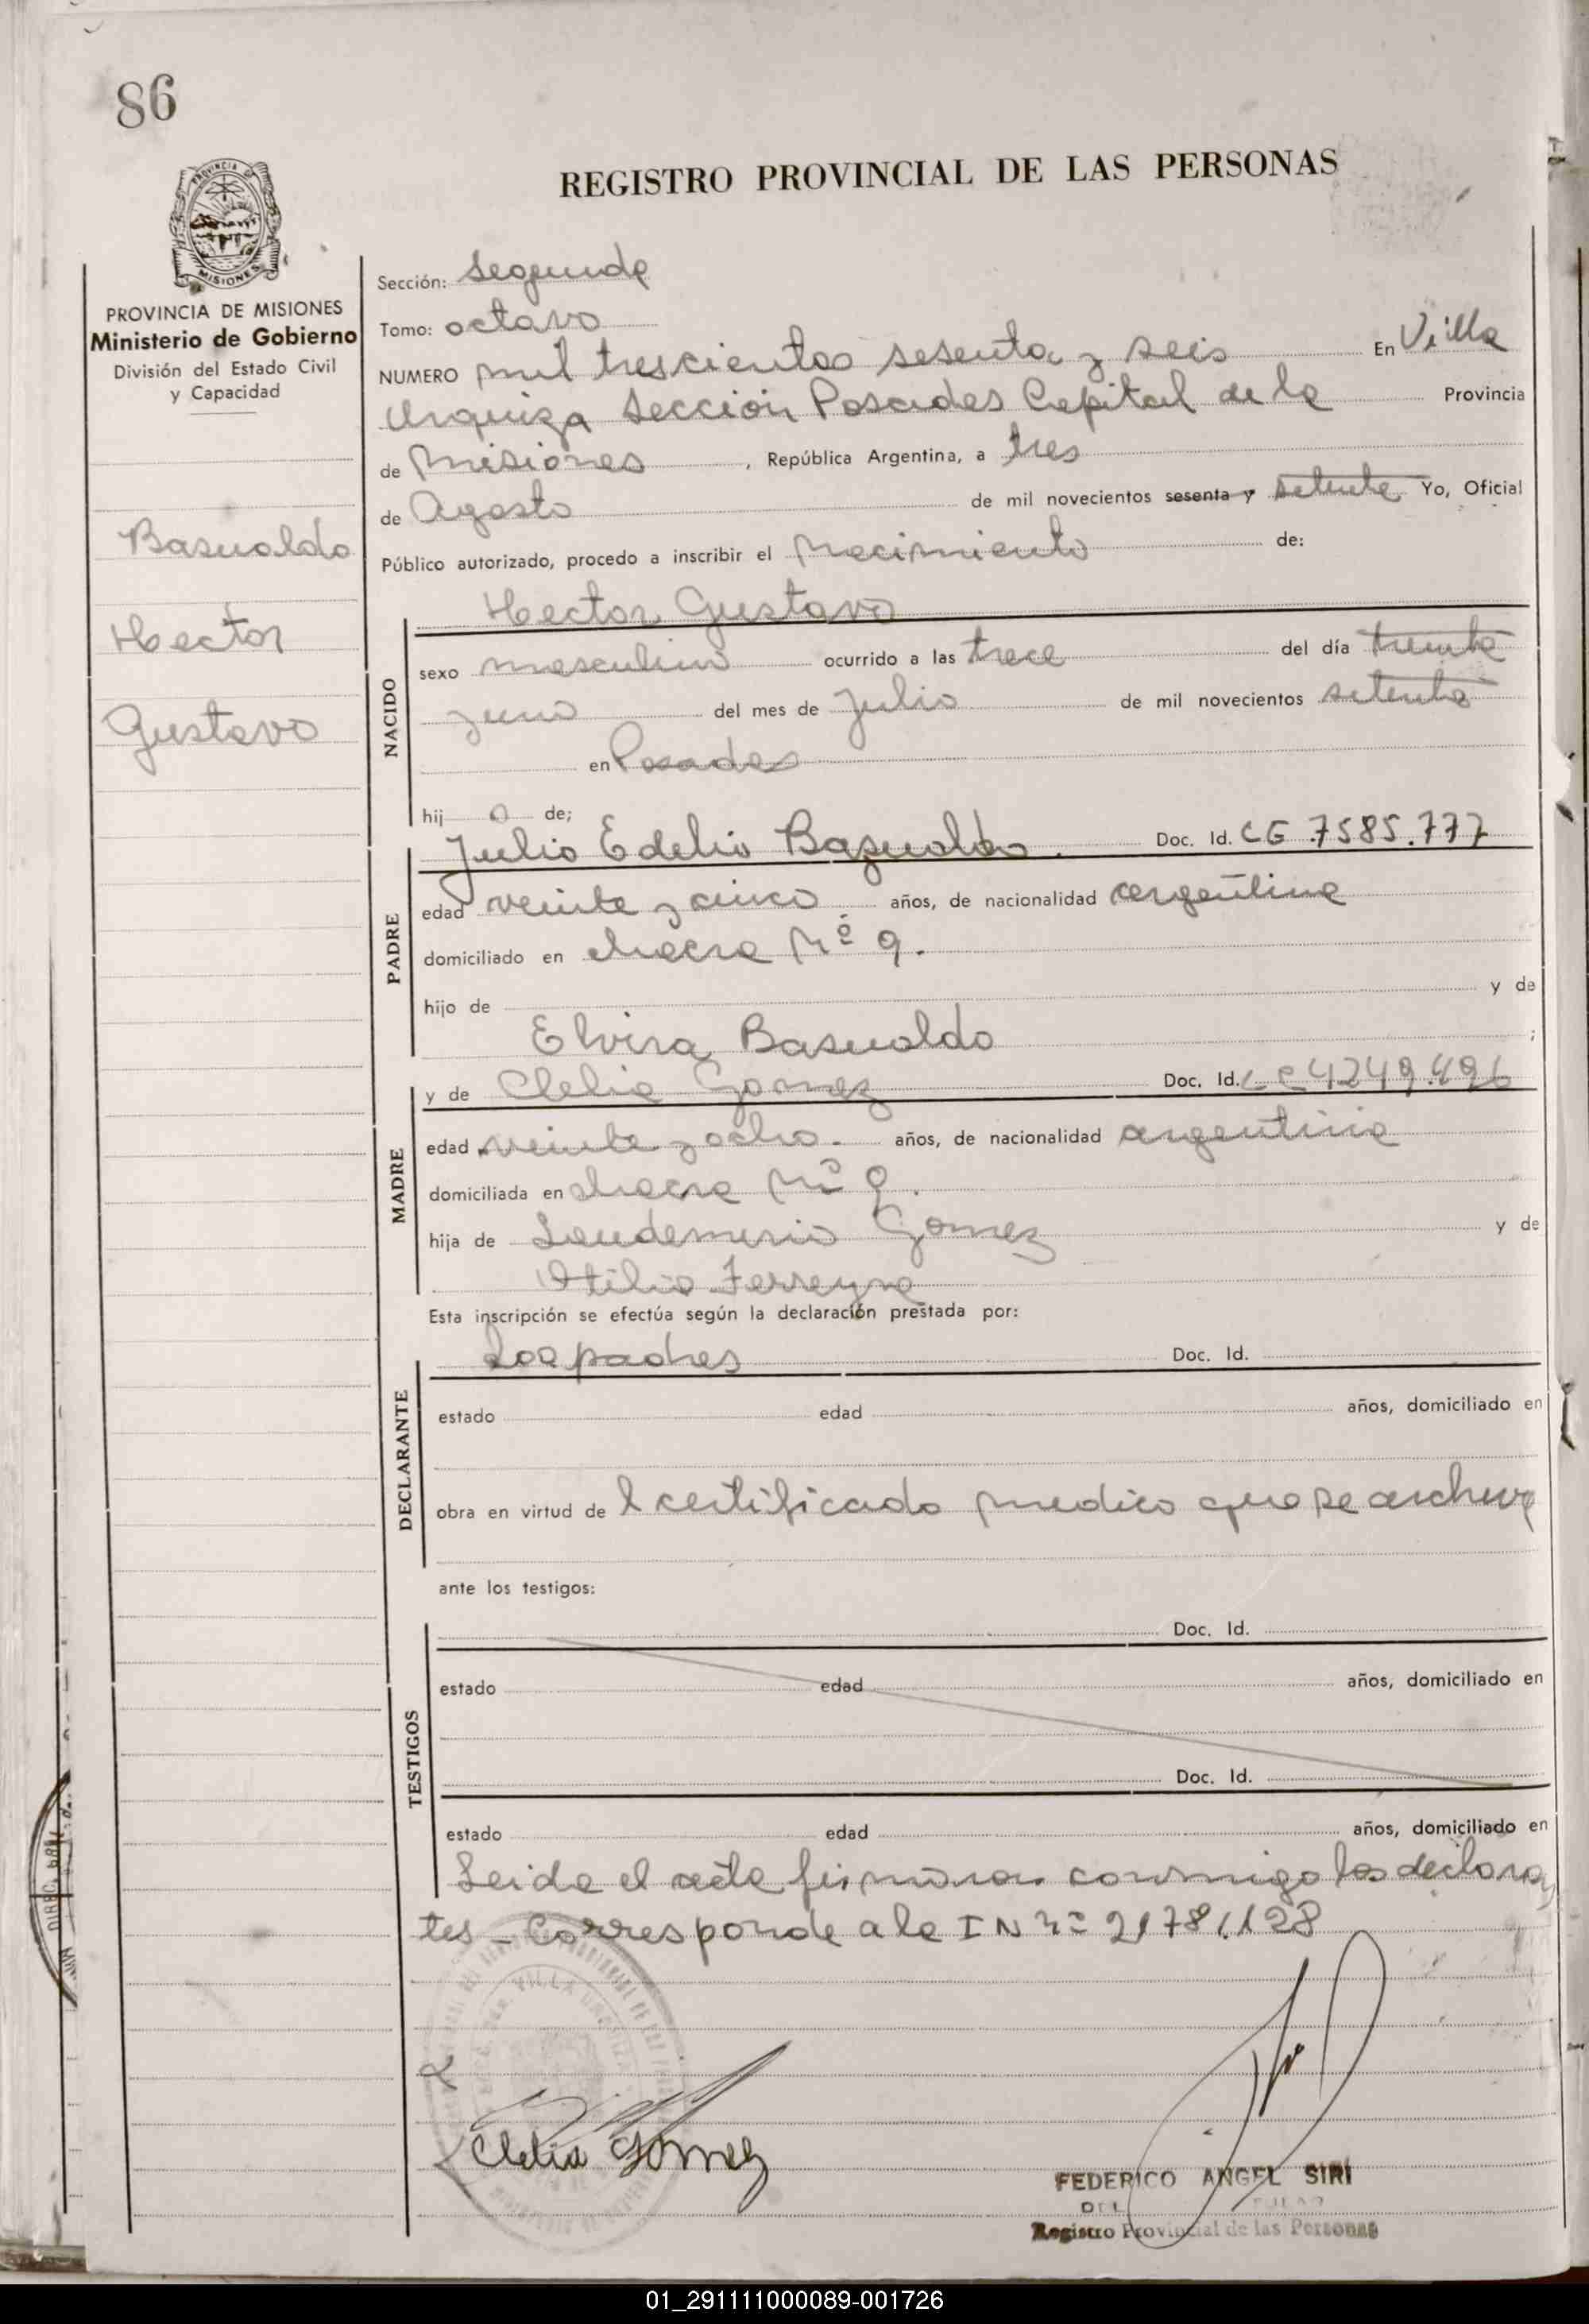 86
REGISTRO PROVINCIAL DE LAS PERSONAS
PROVINCIA DE MISIONES
Ministerio de Gobierno
División del Estado Civil
y Capacidad
Basualdo
Hector
Gustavo
Sección: segunda
Tomo: octavo
NUMERO mil trescientos sesenta y seis En Villa
Urquiza Sección Posadas Capital de la Provincia
de Misiones, República Argentina, a tres
de Agosto de mil novecientos sesenta y setenta Yo, Oficial
Público autorizado, procedo a inscribir el nacimiento de:
Hector Gustavo
NACIDO
sexo masculino ocurrido a las trece del día treinta
y uno del mes de Julio de mil novecientos setenta
en Posadas
hijo de;
Julio Edelio Basualdo. Doc. Id. CE 7585.777
PADRE
edad veinte y cinco años, de nacionalidad argentina
domiciliado en chacra Nº 9.
hijo de y de
Elvira Basualdo ;
y de Clelia Gomez Doc. Id. LC 4249.496
MADRE
edad veinte y ocho. años, de nacionalidad argentina
domiciliada en chacra Nº 9.
hija de Laudemirio Gomez y de
Otilia Ferreyra
Esta inscripción se efectúa según la declaración prestada por:
Los padres Doc. Id.
DECLARANTE
estado edad años, domiciliado en
obra en virtud de l certificado medico que se archiva
ante los testigos:
Doc. Id.
TESTIGOS
estado edad años, domiciliado en
Doc. Id.
estado edad años, domiciliado en
Leida el acta firmaron conmigo los declaran
tes - Corresponde a la I N nº 21781.128
Clelia Gomez
FEDERICO ANGEL SIRI
Registro Provincial de las Personas
01_291111000089-001726